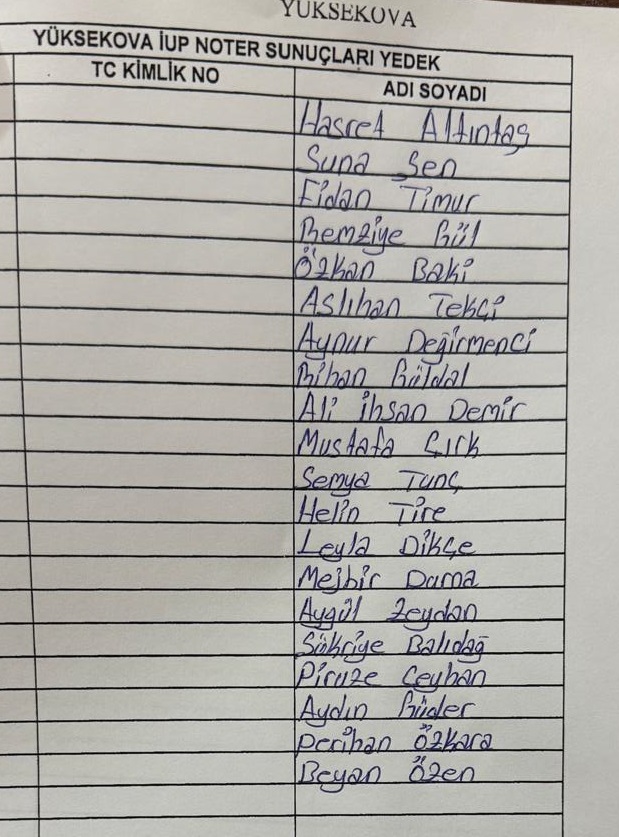 YÜKSEKOVA
YÜKSEKOVA İUP NOTER SUNUÇLARI YEDEK
TC KİMLİK NO ADI SOYADI
Hasret Altıntaş
Suna Şen
Fidan Timur
Remziye Gül
Özkan Baki
Aslıhan Tekçi
Aynur Değirmenci
Rihan Güldal
Ali İhsan Demir
Mustafa Çırk
Semya Tunç
Helin Tire
Leyla Dikçe
Mejbir Dama
Aygül Zeydan
Şükriye Balıdağ
Piruze Ceyhan
Aydın Güder
Perihan Özkara
Beyan Özen